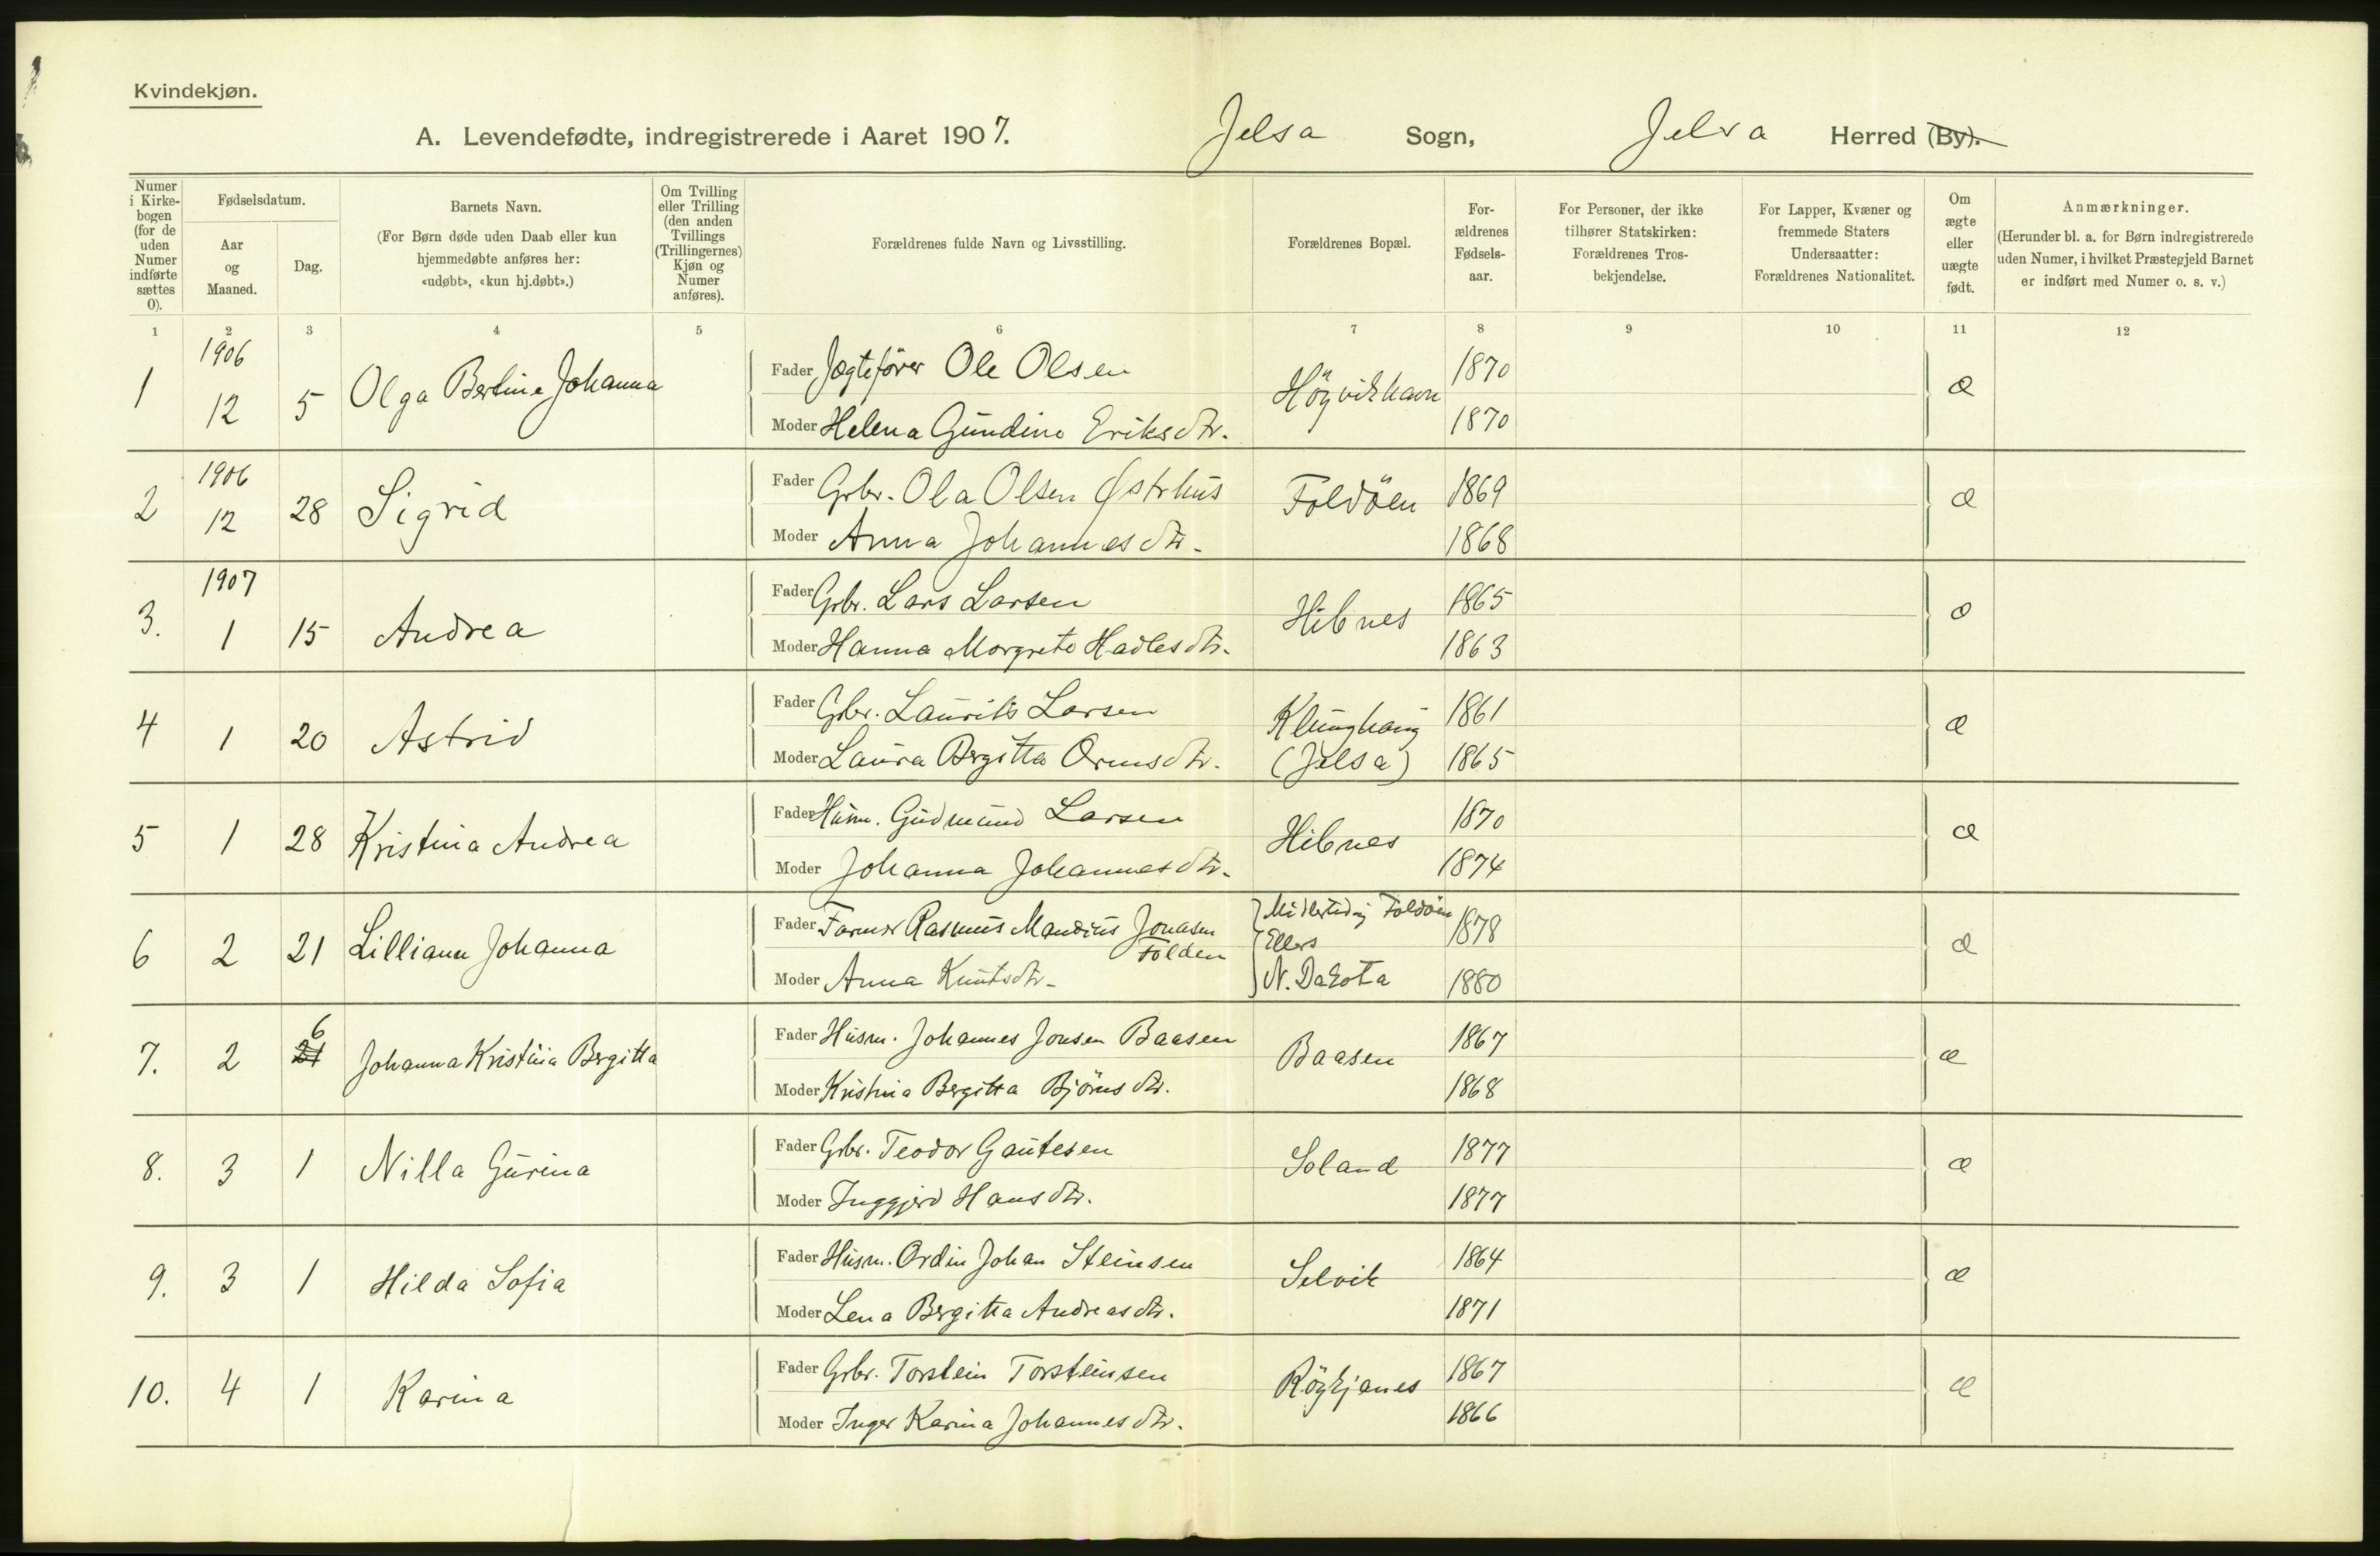 Kvindekjøn.
A. Levendefødte, indregistrerede i Aaret 1907. Jelsa Sogn, Jelsa Herred (By).
Numer i Kirkebogen (for de uden Numer indførte sættes 0).
Fødselsdatum.
Aar og Maaned.
Dag.
Barnets Navn.
(For Børn døde uden Daab eller kun hjemmedøbte anføres her: «udøbt», «kun hj.døbt».)
Om Tvilling eller Trilling (den anden Tvillings (Trillingernes) Kjøn og Numer anføres).
Forældrenes fulde Navn og Livsstilling.
Forældrenes Bopæl.
Forældrenes Fødselsaar.
For Personer, der ikke tilhører Statskirken: Forældrenes Trosbekjendelse.
For Lapper, Kvæner og fremmede Staters Undersaatter: Forældrenes Nationalitet.
Om ægte eller uægte født.
Anmærkninger.
(Herunder bl. a. for Børn indregistrerede uden Numer, i hvilket Præstegjeld Barnet er indført med Numer o. s. v.)
1 2 3 4 5 6 7 8 9 10 11 12
1 1906 12 5 Olga Bertine Johanna Fader Jægtefører Ole Olsen Högvikhavn 1870 æ
Moder Helena Gundine Eriksdtr. 1870
2 1906 12 28 Sigrid Fader Grbr. Ola Olsen Østrhus Foldöen 1869 æ
Moder Anna Johannesdtr. 1868
3. 1907 1 15 Andrea Fader Grbr. Lars Larsen Hibnes 1865 æ
Moder Hanna Margrete Hadlesdtr. 1863
4 1 20 Astrid Fader Grbr. Laurits Larsen Klunghaug 1861 æ
Moder Laura Bergitta Ormsdtr. (Jelsa) 1865
5 1 28 Kristina Andrea Fader Husm. Gudmund Larsen Hibnes 1870 æ
Moder Johanna Johannesdtr. 1874
6 2 21 Lilliann Johanna Fader Farmer Rasmus Mandius Jonasen Folden Midlertidig Foldöen Ellers 1878 æ
Moder Anna Knutsdtr. N. Dakota 1880
7. 2 21 6 Johanna Kristina Bergitta Fader Husm. Johannes Jonsen Baasen Baasen 1867 æ
Moder Kristina Bergitta Björnsdtr. 1868
8. 3 1 Nilla Gurina Fader Grbr. Teodor Gautesen Soland 1877 æ
Moder Inggjerd Hansdtr. 1877
9. 3 1 Hilda Sofia Fader Husm. Ordin Johan Steinsen Selvik 1864 æ
Moder Lena Bergitta Andreasdtr. 1871
10. 4 1 Karina Fader Grbr. Torstein Torsteinsen Rögkjanes 1867 æ
Moder Inger Karina Johannesdtr. 1866